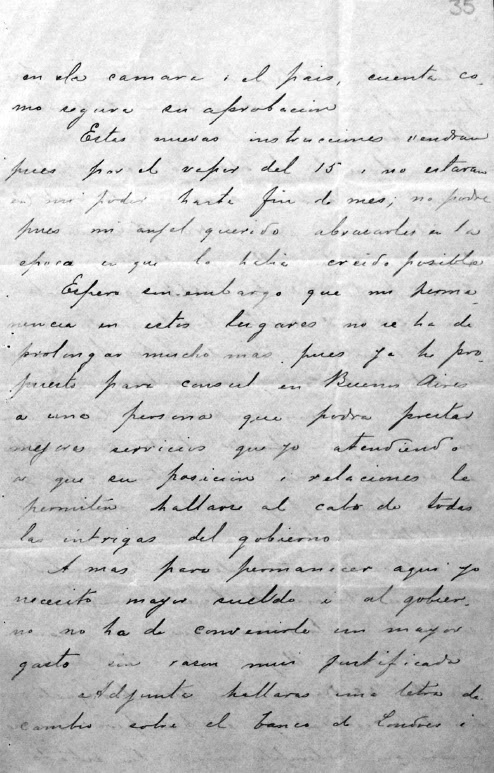 35
en la camara i el pais, cuenta co-
mo segura su aprobacion
Estas nuevas instrucciones vendran
pues por el vapor del 15 i no estaran
en mi poder hasta fin de mes; no podre
pues mi anjel querido abrazarte en la
epoca en que lo habia creido posible
Espero sin embargo que mi perma
nencia en estos lugares no se ha de
prolongar mucho mas pues ya he pro
puesto para consul en Buenos Aires
a una persona que podra prestar
mejores servicios que yo atendiendo
a que su posicion i relaciones le
permiten hallarse al cabo de todas
las intrigas del gobierno
A mas para permanecer aqui yo
necesito mayor sueldo i al gobier-
no no ha de convenirle un mayor
gasto sin razon mui justificada
Adjunta hallaras una letra de
cambio sobre el banco de Londres i